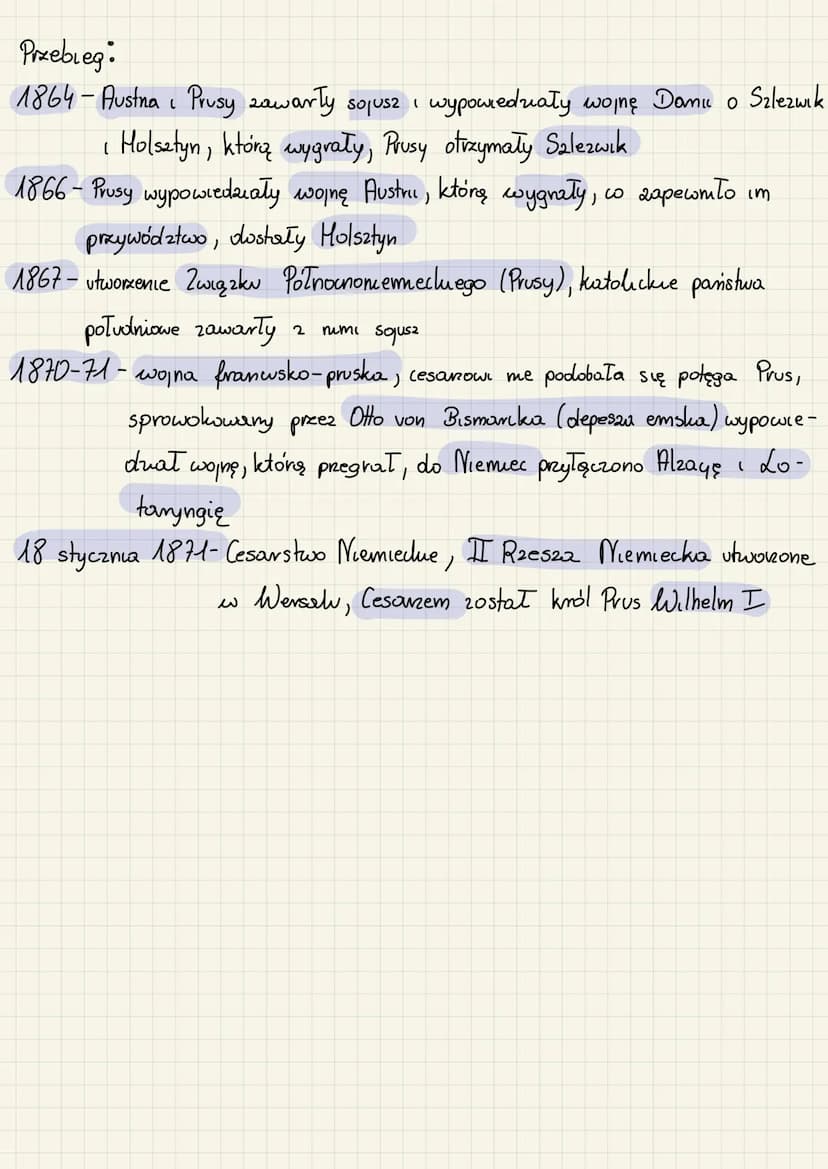 Przebieg:
1864 - Austria i Prusy zawarły sojusz i wypowiedziały wojnę Danii o Szlezwik
i Holsztyn, którą wygrały, Prusy otrzymały Szlezwik
1866 - Prusy wypowiedziały wojnę Austrii, którą wygrały, co zapewniło im
przywództwo, dostały Holsztyn
1867 - utworzenie Związku Północnoniemieckiego (Prusy), katolickie państwa
południowe zawarły z nimi sojusz
1870-71 - wojna francusko-pruska, cesarzowi nie podobała się potęga Prus,
sprowokowany przez Otto von Bismarcka (depesza emska) wypowie-
dział wojnę, którą przegrał, do Niemiec przyłączono Alzację i Lo-
taryngię
18 stycznia 1871 - Cesarstwo Niemieckie, II Rzesza Niemiecka utworzone
w Wersalu, Cesarzem został król Prus Wilhelm I